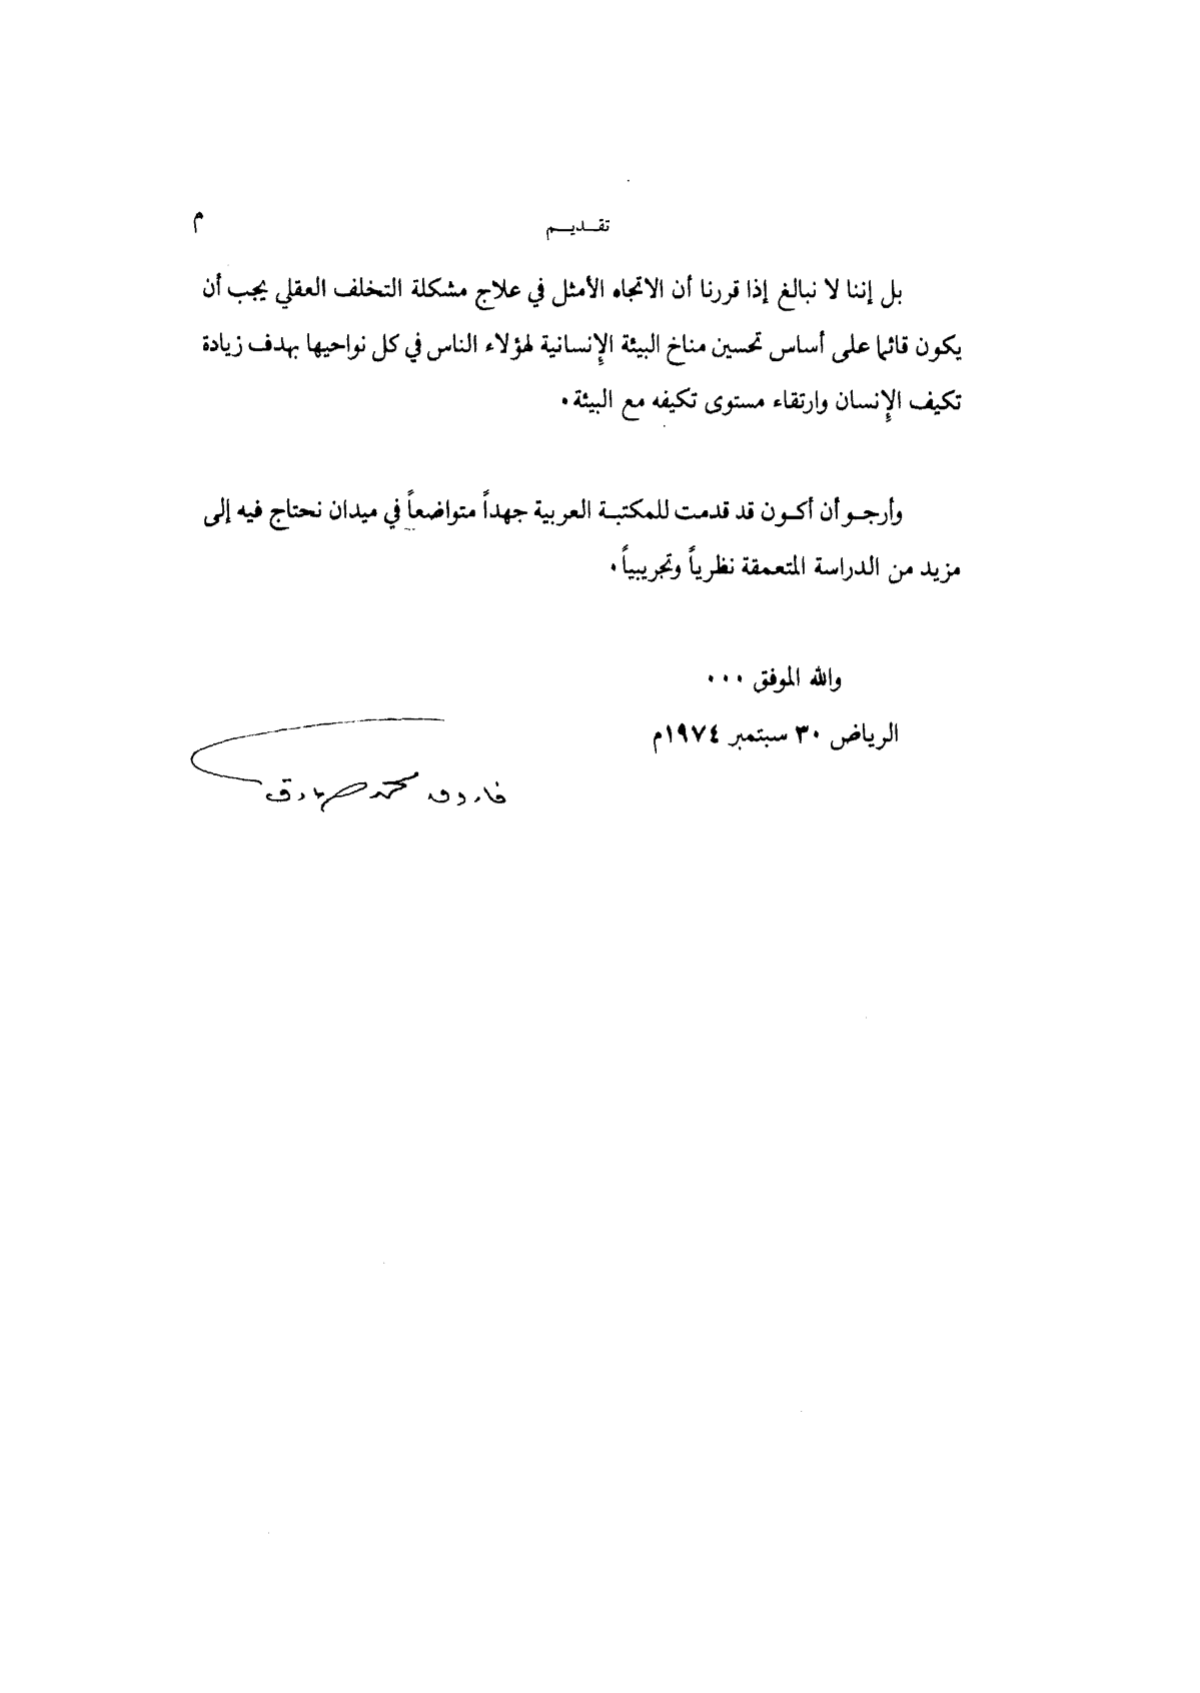 تقديم
م
بل إننا لا نبالغ إذا قررنا أن الاتجاه الأمثل في علاج مشكلة التخلف العقلي يجب أن
يكون قائما على أساس تحسين مناخ البيئة الإنسانية لهؤلاء الناس في كل نواحيها بهدف زيادة
تكيف الإنسان وارتقاء مستوى تكيفه مع البيئة.
وأرجو أن أكون قد قدمت للمكتبة العربية جهداً متواضعاً في ميدان نحتاج فيه إلى
مزيد من الدراسة المتعمقة نظرياً وتجريبياً.
والله الموفق ...
الرياض ٣٠ سبتمبر ١٩٧٤م
فاروق محمد صادق